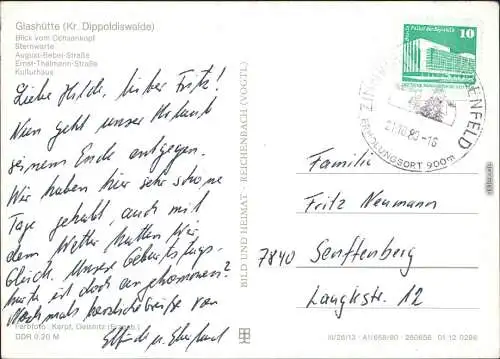 Glashütte (Kr. Dippoldiswalde)
Blick vom Ochsenkopf
Sternwarte
August-Bebel-Straße
Ernst-Thälmann-Straße
Kulturhaus
Liebe Hilde, lieber Fritz!
Nun geht unser Urlaub
seinem Ende entgegen.
Wir haben hier sehr schöne
Tage gehabt, auch mit
dem Wetter hatten wir
Glück. Unsere Geburtstags-
karte ist doch angekommen?
Nochmals herzliche Grüße von
Elfriede u. Eberhard
Farbfoto: Karpf, Geising (Erzgeb.)
DDR 0,20 M
BILD UND HEIMAT · REICHENBACH (VOGTL)
10
ENFELD
21.10.80-16
ERHOLUNGSORT 900m
Familie
Fritz Neumann
7840 Senftenberg
Langkstr. 12
III/26/13 · A1/658/80 · 260656 01 12 0286